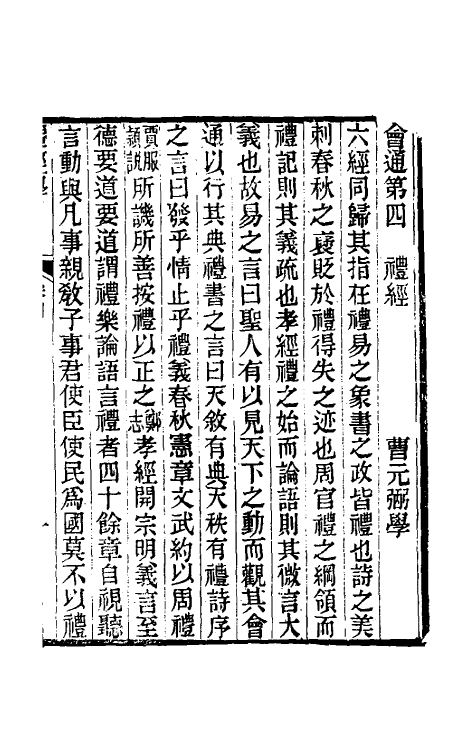 會通第四　禮經　曹元弼學
六經同歸其指在禮易之象書之政皆禮也詩之美
刺春秋之襃貶於禮得失之迹也周官禮之綱領而
禮記則其義疏也孝經禮之始而論語則其微言大
義也故易之言曰聖人有以見天下之動而觀其會
通以行其典禮書之言曰天敘有典天秩有禮詩序
之言曰發乎情止乎禮義春秋憲章文武約以周禮
賈服
穎說
所譏所善按禮以正之
鄭
志
孝經開宗明義言至
德要道要道謂禮樂論語言禮者四十餘章自視聽
言動與凡事親敎子事君使臣使民爲國莫不以禮
一